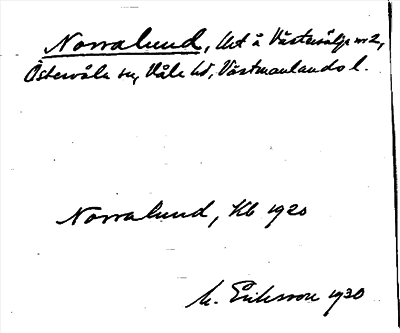 Norralund, Aet å Västersälje nr 2,
Östervåla sn, Våla hd, Västmanlands l.
Norralund, Kb 1920
M. Eriksson 1930